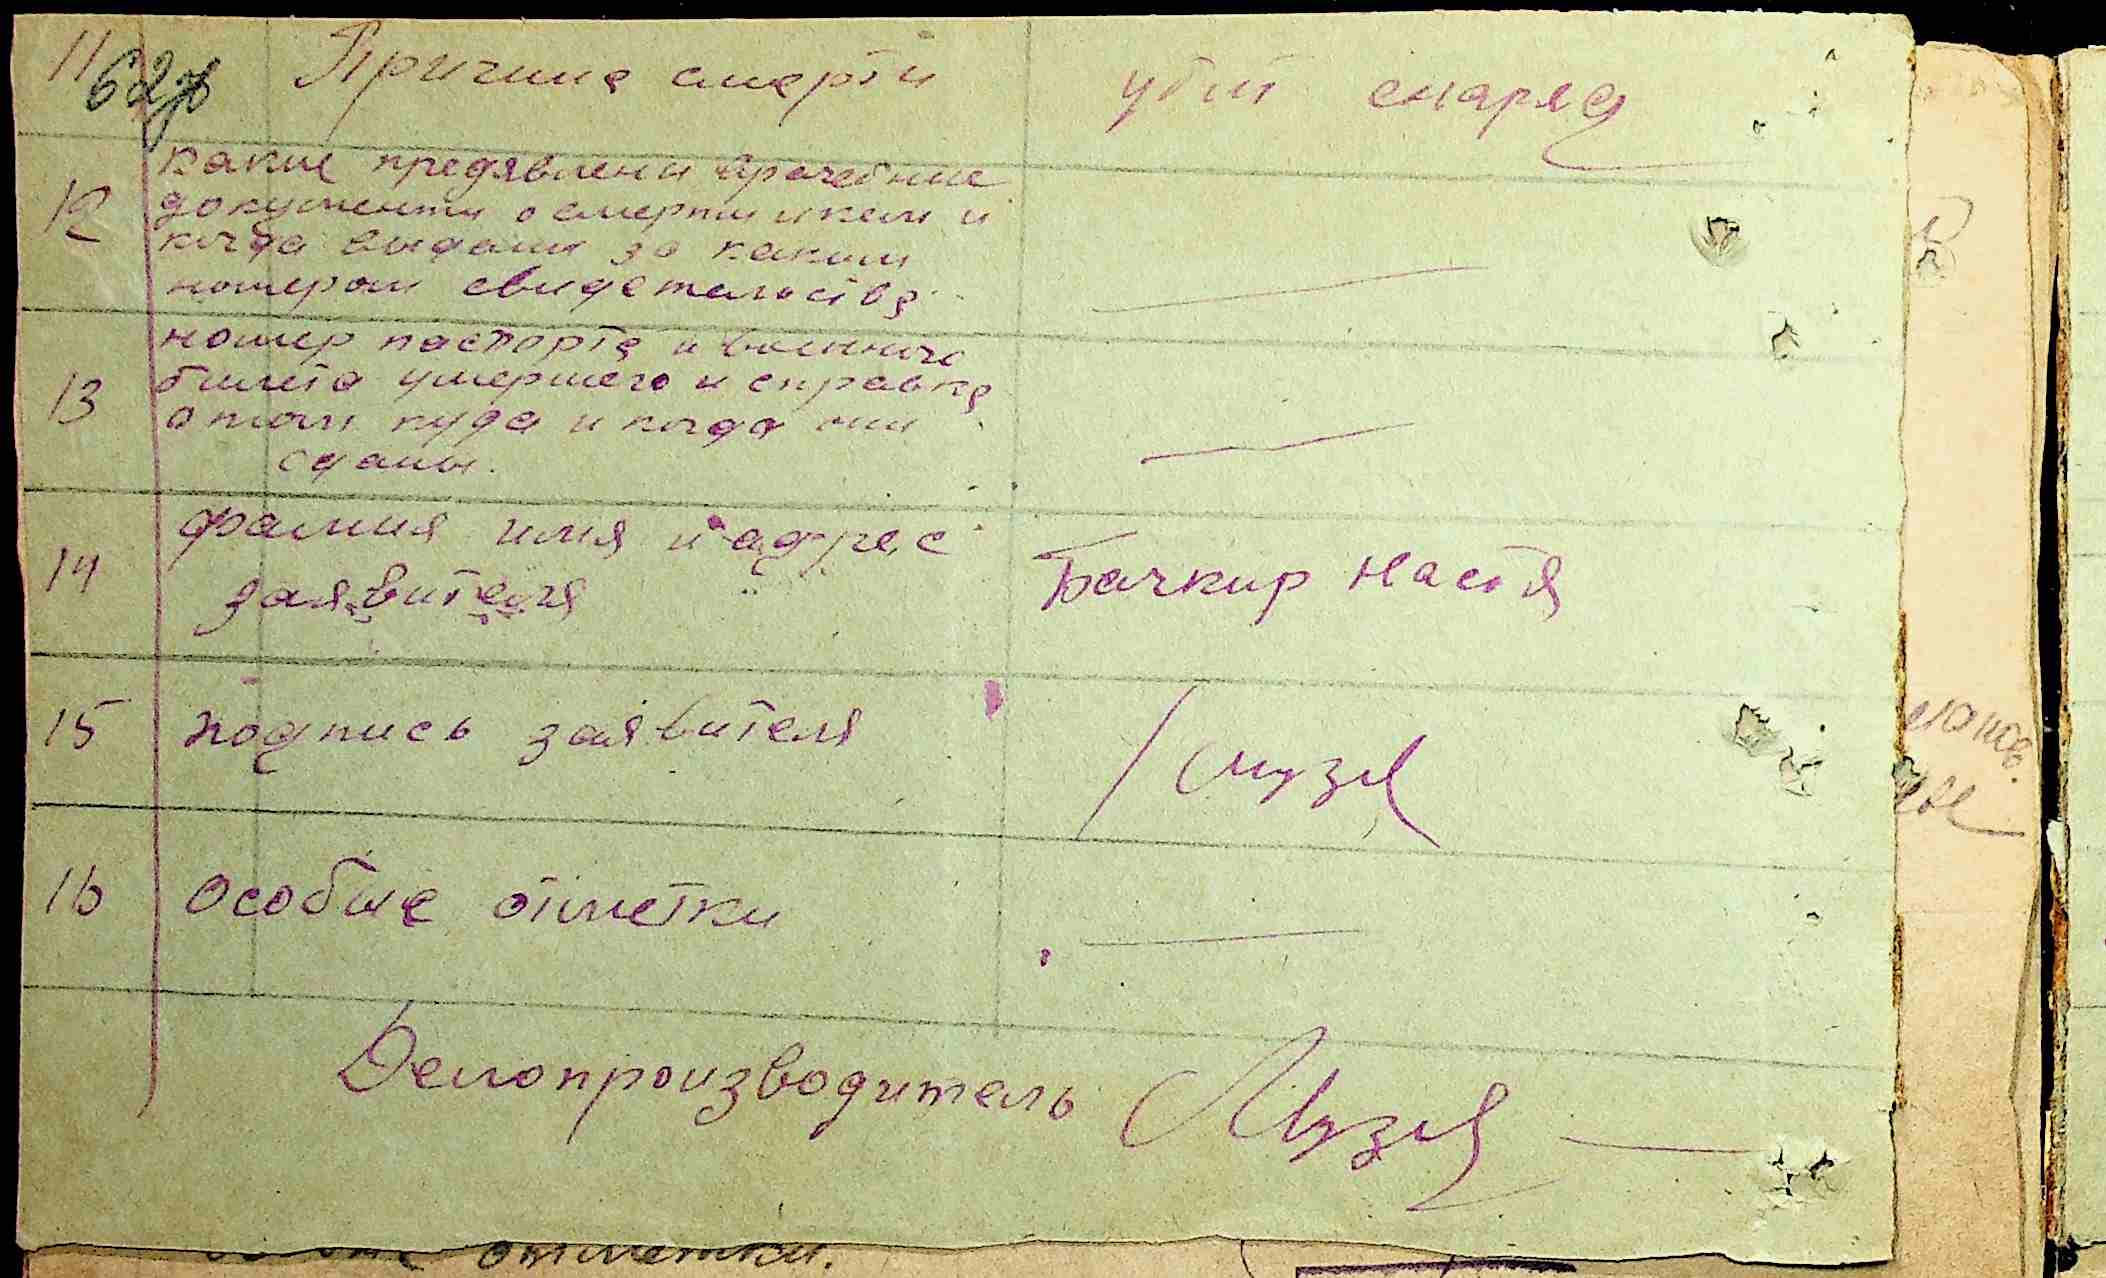 11 Причина смерти убит снаряд
62
12 какие предявлени врачебние
документи о смерти и кем и
когда выдани за каким
номером свидетельства
13 номер паспорта и военного
билета умершего и справка
о том куда и когда они
сданы.
14 фамия имя и адрес Бачкир Настя
заявителя
15 подпись заявителя
16 особые отметки
Делопроизводитель
отметки.